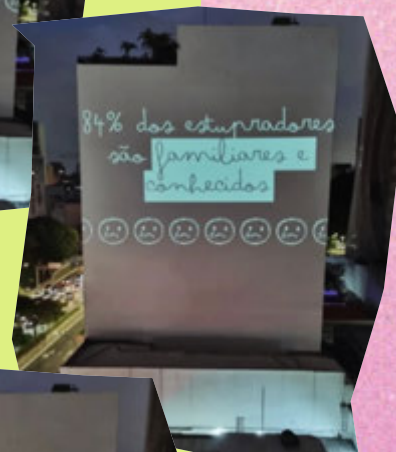 84% dos estupradores
são familiares e
conhecidos